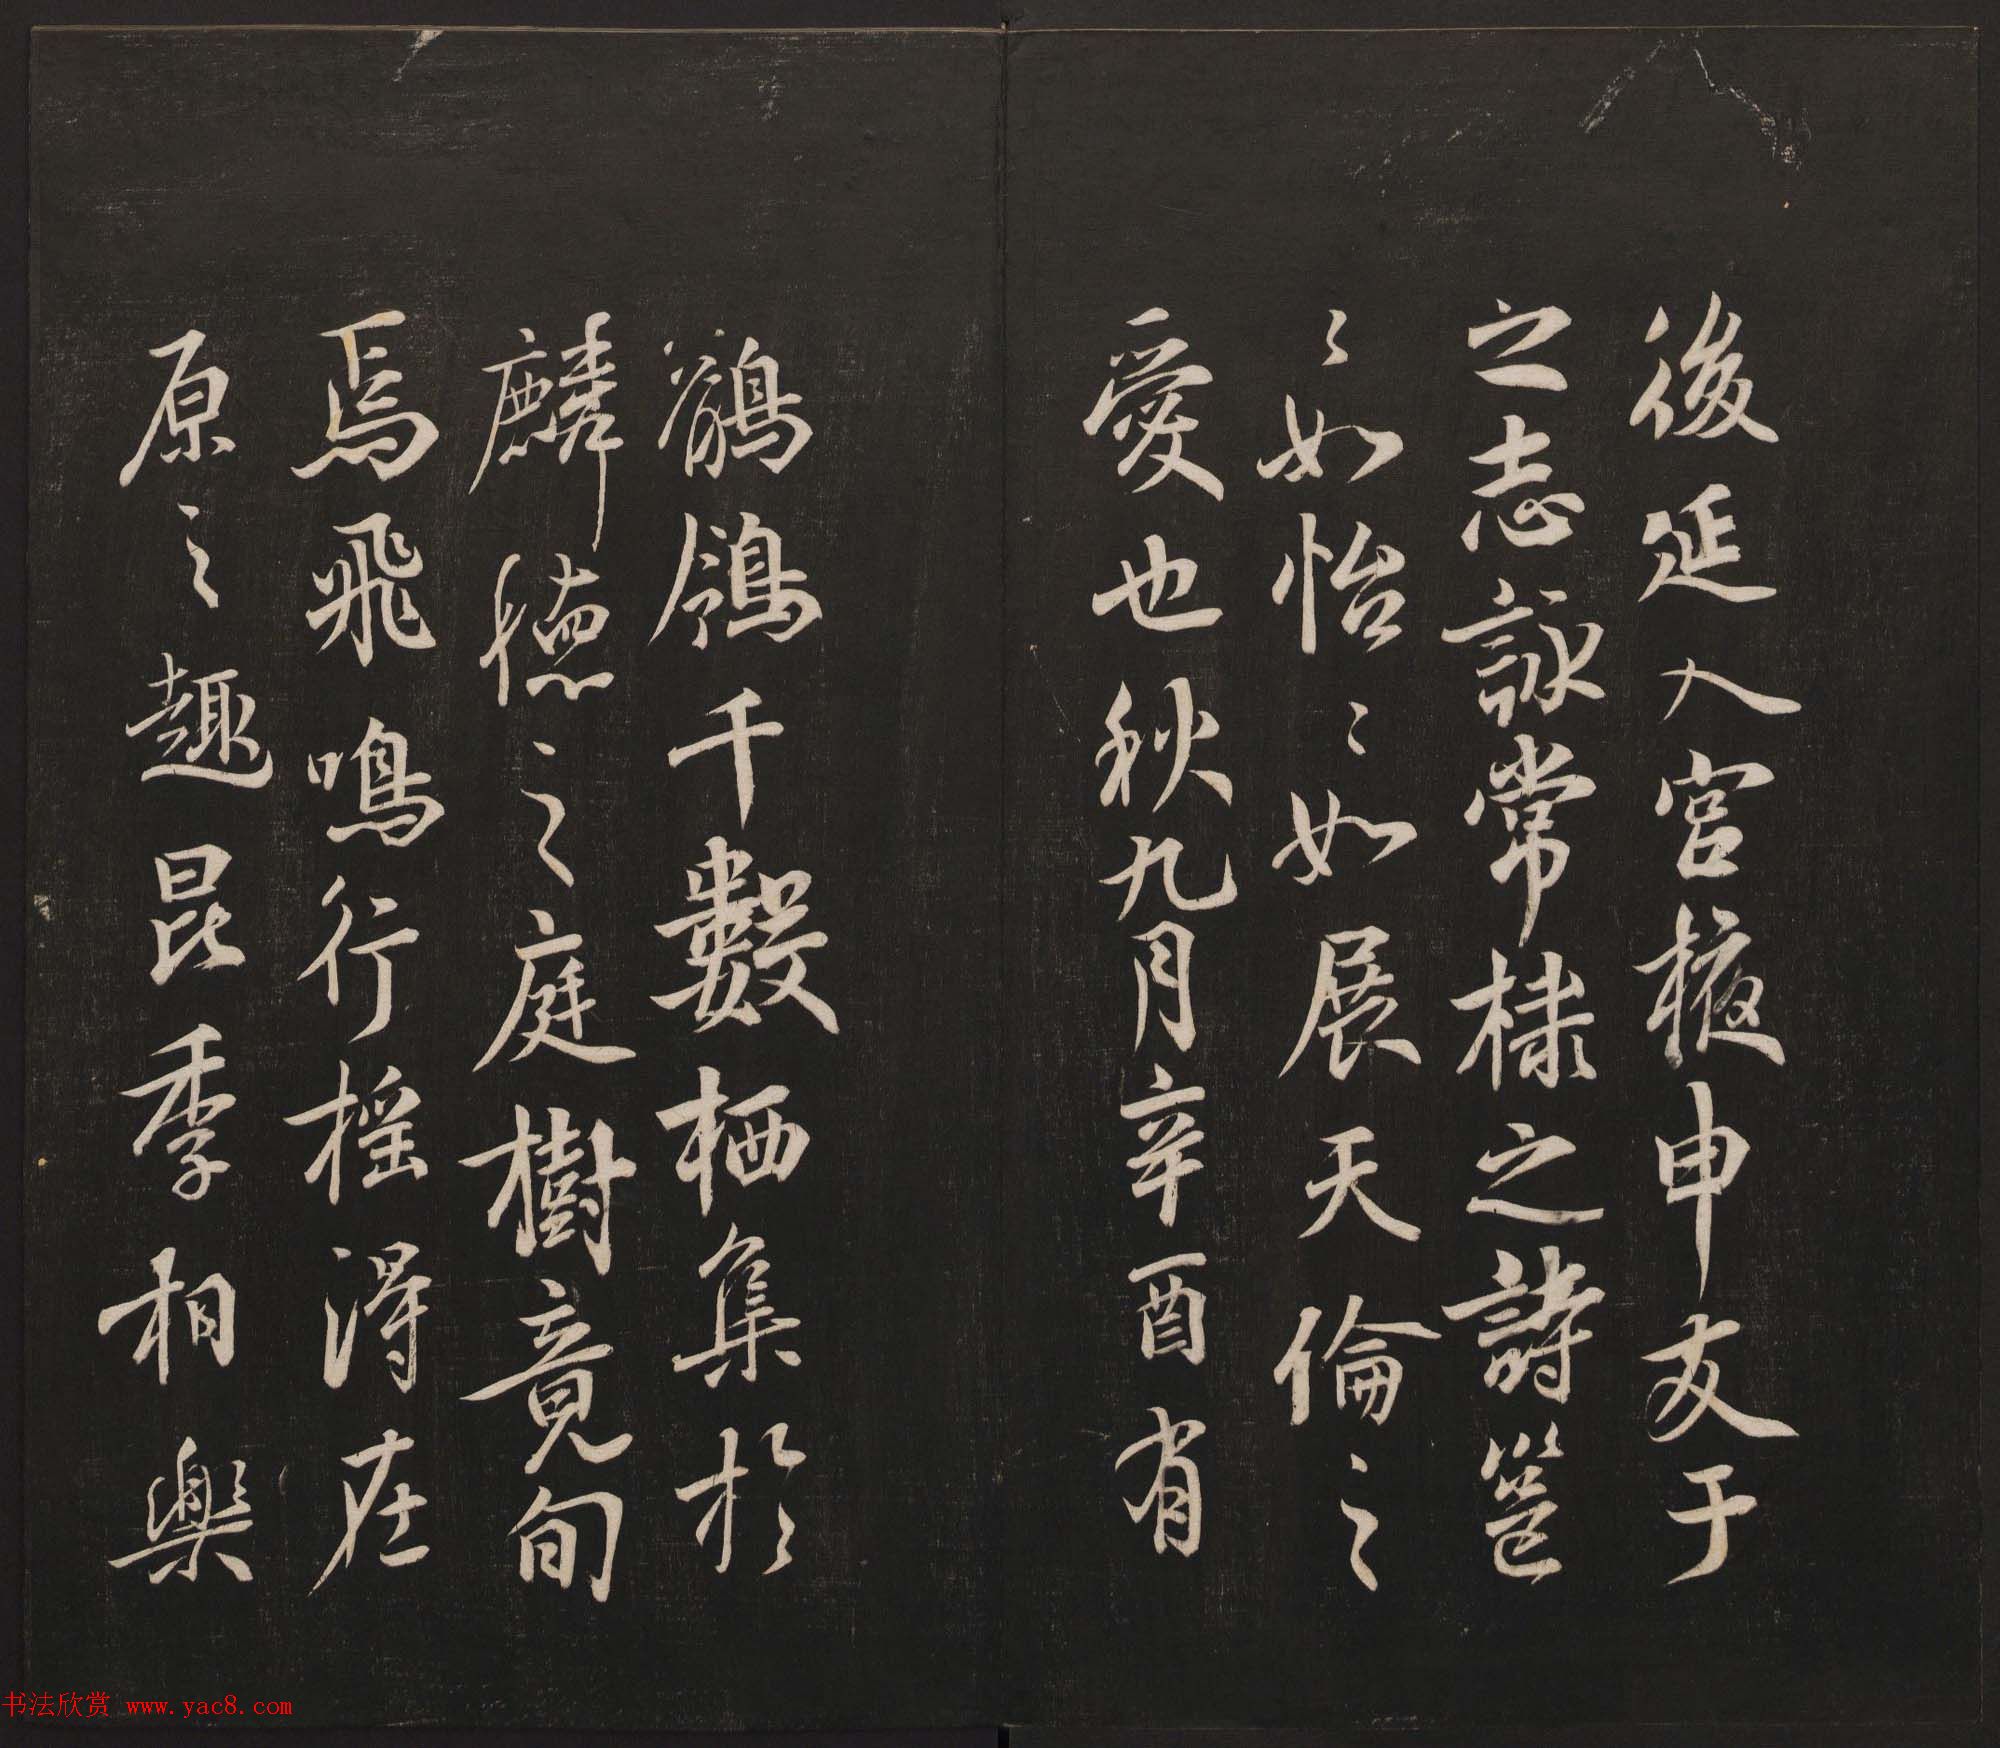 後延入宮掖申友于
之志詠常棣之詩邕
〻如怡〻如展天倫之
愛也秋九月辛酉有
鶺鴒千數栖集於
麟德之庭樹竟旬
焉飛鳴行搖得在
原之趣昆季相樂
书法欣赏 www.yac8.com